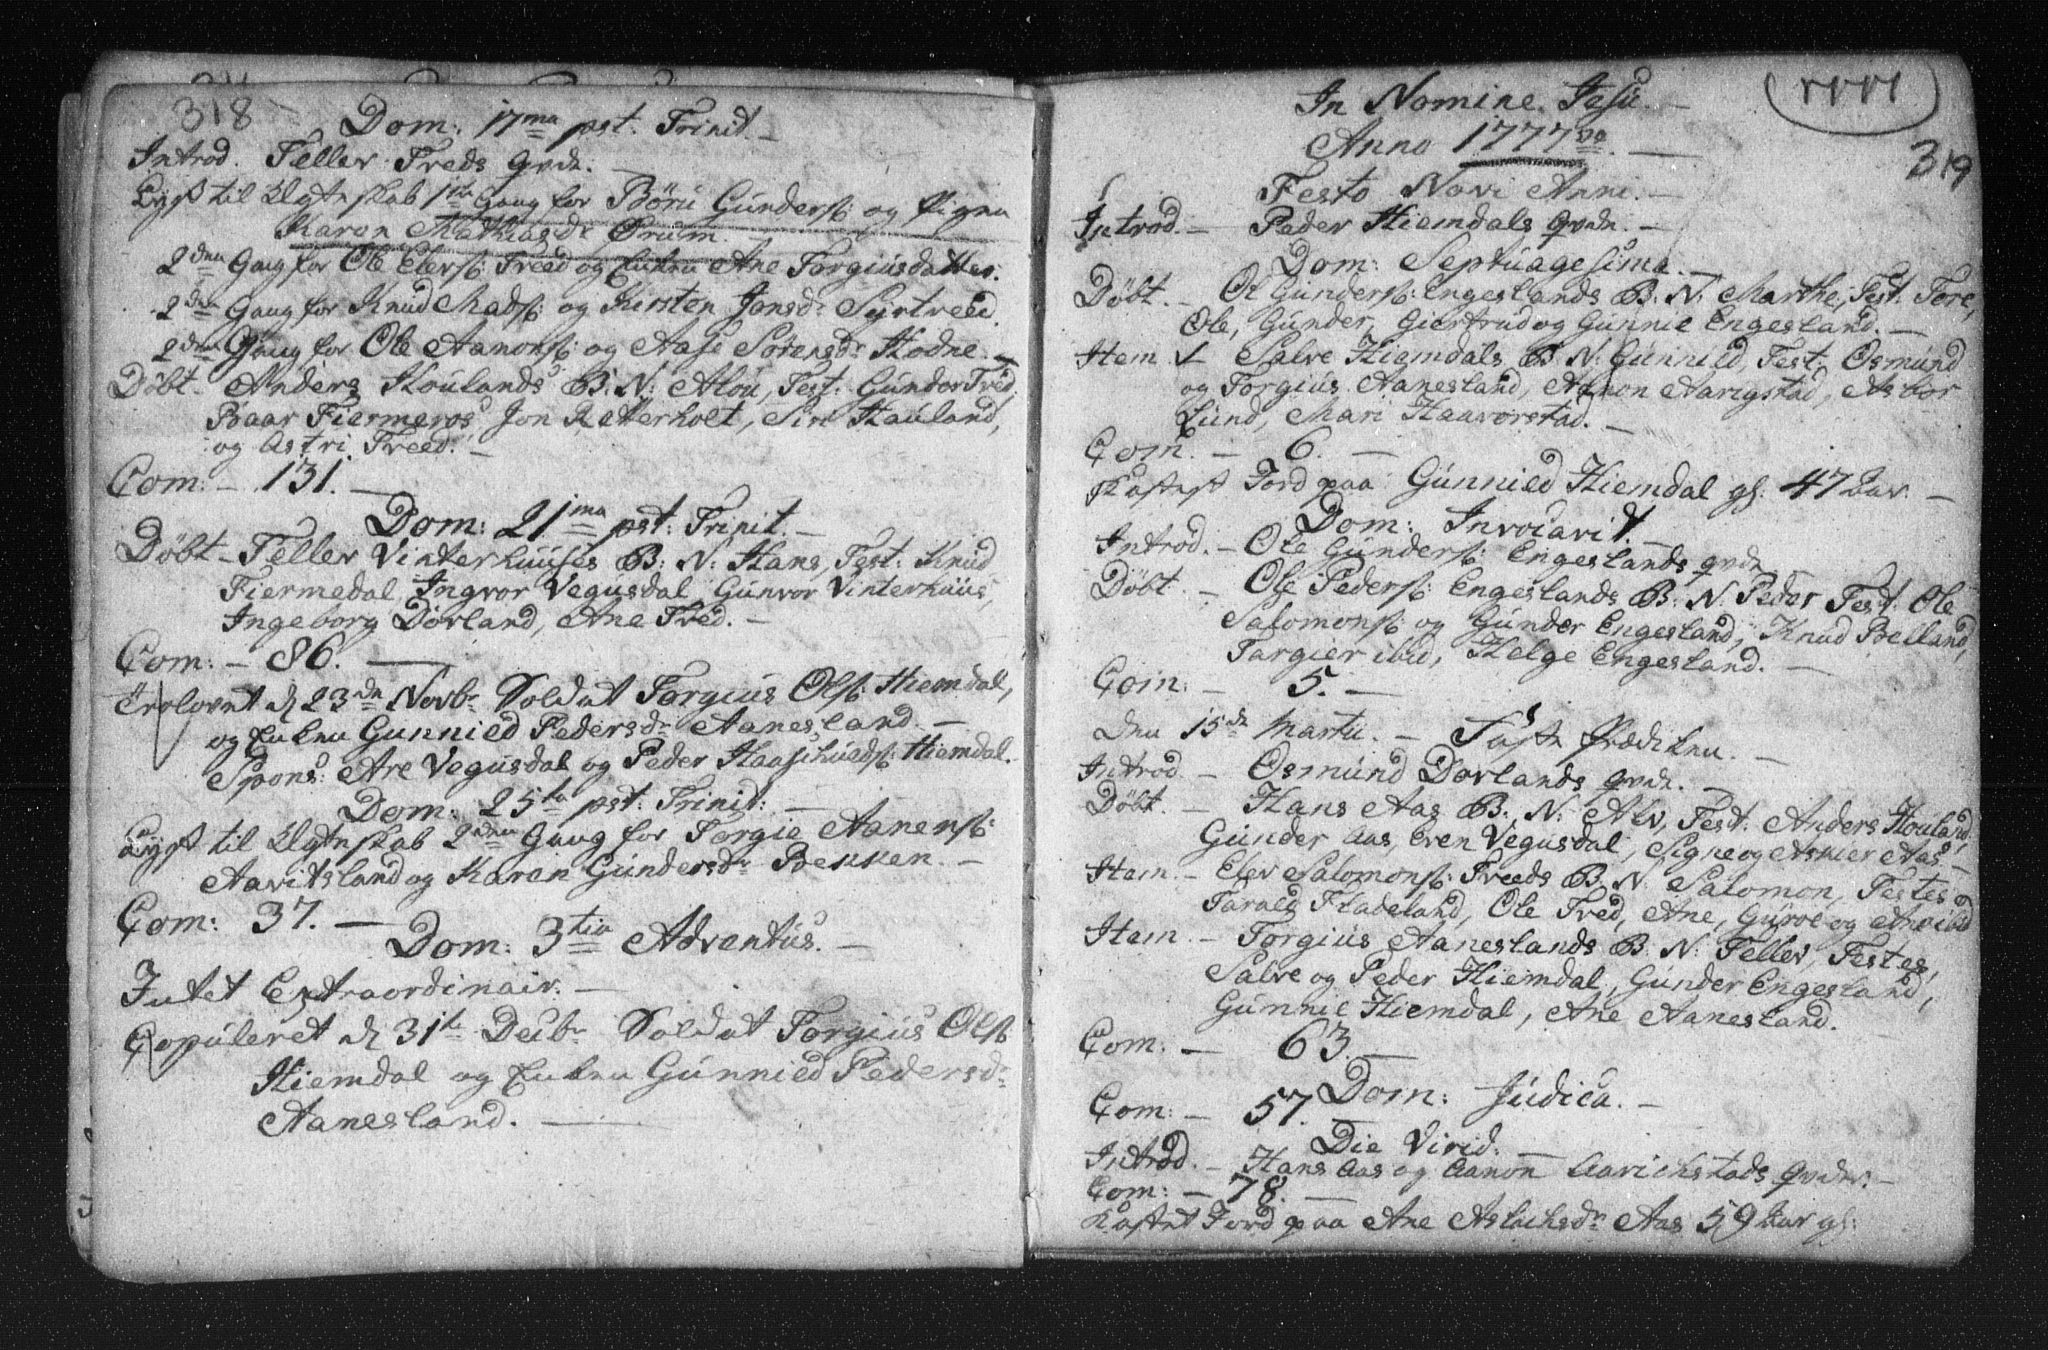 318
Dom: 17ma pst: Trinit. —
Introd. Tellev Treds qvde. —
Lyst til Ægteskab 1ste Gang for Börü Gunders: og Pigen
Karen Mathiasdr Ørum. —
2den Gang for Ole Elers: Treed og Enken Ane Torgiusdatter.
2den Gang for Knud Mads: og Kirsten Jonsdr Syrtveed.
2den Gang for Ole Aanons: og Aase Sörensdr Hodne. —
Döbt. Anders Houlands B: N: Alou, Test: Gunder Tred,
Baar Fiermeros, Jon Retterholt, Siri Hauland,
og Astri Treed. —
Com: — 131. —
Dom: 21ma pst: Trinit. —
Döbt — Tellev Vinterhuuses B: N: Hans, Test: Knud
Fiermedal, Ingvor Vegusdal, Gunvor Vinterhuus,
Ingeborg Dorland, Ane Tred. —
Com: — 86. —
Trolovet d 23de Novbr Soldat Torgius Ols: Hiemdal,
og Enken Gunnied Pedersdr Aanesland. —
Spons: Are Vegusdal og Peder Haaschulds: Hiemdal.
Dom: 25ta pst: Trinit: —
Lyst til Ægteskab 2den Gang for Torgie Aanens:
Aavitsland og Karen Gundersdr Bekken. —
Com: 37. —
Dom: 3tia Adventus. —
Intet Extraordinair. —
Copuleret d 31te Decbr Soldat Torgius Ols:
Hiemdal og Enken Gunnied Pedersdr
Aanesland. —
1777
319
In Nomine Jesu. —
Anno 1777mo. —
Festo Novi Anni. —
Introd. — Peder Hiemdals qvde. —
Dom: Septuagesima. —
Döbt. — Ol Gunders: Engeslands B: N: Marthe, Test: Tore,
Ole, Gunder, Giertrud og Gunnie Engesland. —
Item Salve Hiemdals B: N: Gunnild, Test: Osmund
og Torgius Aanesland, Aanon Aarigstad, Asbor
Lund, Mari Haavorstad. —
Com. — 6. —
Kastet Jord paa Gunnied Hiemdal gl: 47 Aar. —
Dom: Invocavit. —
Introd. — Ole Gunders: Engeslands qvde. —
Döbt. — Ole Peders: Engeslands B: N: Peder Test: Ole
Salomons: og Gunder Engesland, Knud Belland,
Targier ibid, Helge Engesland. —
Com: — 5. —
den 15de Martii. — Faste Prædiken. —
Introd. — Osmund Dorlands qvde. —
Döbt. — Hans Aas B: N: Alv, Test: Anders Houland,
Gunder Aas, Even Vegusdal, Signe og Asmier Aas. —
Item. — Elev Salomons: Treeds B: N: Salomon, Testes
Tarald Fladeland, Ole Tred, Ane, Guroe og Ane ibid
Item. — Torgius Aaneslands B: N: Tellev, Testes,
Salve og Peder Hiemdal, Gunder Engesland,
Gunnie Hiemdal, Ane Aanesland.
Com. — 63. —
Dom: Judica. —
Com: — 57.
Die Virid. —
Introd. — Hans Aas og Aanon Aarichstads qvder. —
Com: — 78. —
Kastet Jord paa Ane Aslachsdr Aas 59 Aar gl: